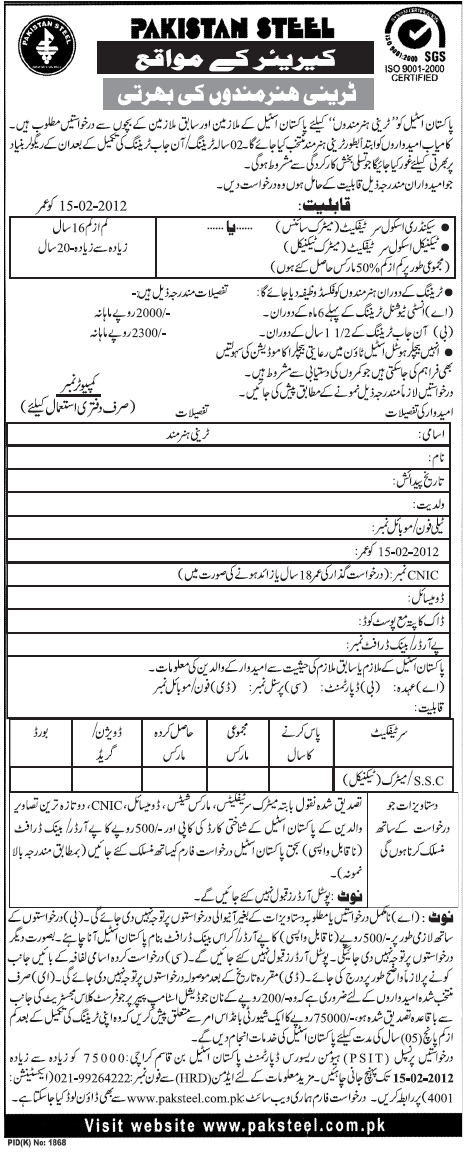 PAKISTAN STEEL
PAKISTAN STEEL
کیریئر کے مواقع
ISO 9001:2000
SGS
ISO 9001-2000
CERTIFIED
ٹرینی ھنرمندوں کی بھرتی
پاکستان اسٹیل کو "ٹرینی ہنرمندوں" کیلئے پاکستان اسٹیل کے ملازمین اور سابق ملازمین کے بچوں سے درخواستیں مطلوب ہیں۔
کامیاب امیدواروں کو ابتدا بطور ٹرینی ہنرمند منتخب کیا جائے گا۔ 02 سالہ ٹریننگ / آن جاب ٹریننگ کی تکمیل کے بعد ان کے ریگولر بنیاد
پر بھرتی کیلئے غور کیا جائے گا جو تسلی بخش کارکردگی سے مشروط ہوگی۔
جو امیدواران مندرجہ ذیل قابلیت کے حامل ہوں وہ درخواست دیں۔
قابلیت: 15-02-2012 کو عمر
● سیکنڈری اسکول سرٹیفکیٹ (میٹرک سائنس) ......یا...... کم از کم 16 سال
● ٹیکنیکل اسکول سرٹیفکیٹ (میٹرک ٹیکنیکل) زیادہ سے زیادہ-20 سال
(مجموعی طور پر کم از کم %50 مارکس حاصل کئے ہوں)
● ٹریننگ کے دوران ہنرمندوں کو فکسڈ وظیفہ دیا جائے گا: تفصیلات مندرجہ ذیل ہیں:-
(اے) انسٹی ٹیوشنل ٹریننگ کے پہلے 6 ماہ کے دوران۔ 2000/- روپے ماہانہ
(بی) آن جاب ٹریننگ کے 1 1/2 سال کے دوران۔ 2300/- روپے ماہانہ
● انہیں بیچلر ہوسٹل اسٹیل ٹاؤن میں رعایتی بیچلر اکاموڈیشن کی سہولتیں
بھی فراہم کی جاسکتی ہیں جو کمروں کی دستیابی سے مشروط ہیں۔ کمپیوٹر نمبر
درخواستیں لازماً مندرجہ ذیل نمونے کے مطابق پیش کی جائیں۔ (صرف دفتری استعمال کیلئے)
امیدوار کی تفصیلات تفصیلات
اسامی: ٹرینی ہنرمند
نام:
تاریخ پیدائش:
ولدیت:
ٹیلی فون / موبائل نمبر:
15-02-2012 کو عمر:
CNIC نمبر: (درخواست گذار کی عمر 18 سال یا زائد ہونے کی صورت میں)
ڈومیسائل:
ڈاک کا پتہ مع پوسٹ کوڈ:
پے آرڈر / بینک ڈرافٹ نمبر:
پاکستان اسٹیل کے ملازم یا سابق ملازم کی حیثیت سے امیدوار کے والدین کی معلومات۔
(اے) عہدہ: (بی) ڈپارٹمنٹ: (سی) پرسنل نمبر: (ڈی) فون / موبائل نمبر
قابلیت:
سرٹیفکیٹ پاس کرنے کا سال مجموعی مارکس حاصل کردہ مارکس ڈویژن / گریڈ بورڈ
S.S.C / میٹرک (ٹیکنیکل)
دستاویزات جو درخواست کے ساتھ منسلک کرنا ہوں گی
تصدیق شدہ نقول بابتہ میٹرک سرٹیفکیٹس، مارکس شیٹس، ڈومیسائل، CNIC، دو تازہ ترین تصاویر
والدین کے پاکستان اسٹیل کے شناختی کارڈ کی کاپی اور -/500 روپے کا پے آرڈر / بینک ڈرافٹ
(ناقابل واپسی) بحق پاکستان اسٹیل درخواست فارم کیساتھ منسلک کئے جائیں (بمطابق مندرجہ بالا
نمونہ)
نوٹ: پوسٹل آرڈرز قبول نہیں کئے جائیں گے۔
نوٹ: (اے) نامکمل درخواستیں یا مطلوبہ دستاویزات کے بغیر آنیوالی درخواستوں پر توجہ نہیں دی جائے گی۔ (بی) درخواستوں کے
ساتھ لازمی طور پر -/500 روپے (ناقابل واپسی) کا پے آرڈر / کراس بینک ڈرافٹ بنام پاکستان اسٹیل آنا چاہئے۔ بصورت دیگر
درخواستوں پر توجہ نہیں دی جائیگی۔ پوسٹل آرڈرز قبول نہیں کئے جائیں گے۔ (سی) درخواست کردہ اسامی لفافہ کے بائیں جانب
کونے پر لازماً واضح طور پر درج کی جائے۔ (ڈی) مقررہ تاریخ کے بعد موصولہ درخواستوں پر توجہ نہیں دی جائے گی۔ (ای) صرف
منتخب شدہ امیدواروں کے لئے ضروری ہے کہ وہ -/200 روپے کے نان جوڈیشل اسٹامپ پیپر پر جو فرسٹ کلاس مجسٹریٹ کی جانب
سے باقاعدہ تصدیق شدہ ہو، -/75000 روپے کا ایک شیورٹی بانڈ اس امر سے متعلق پیش کریں کہ وہ اپنی ٹریننگ کی تکمیل کے بعد کم
از کم پانچ (05) سال کی مدت کیلئے پاکستان اسٹیل کی خدمات انجام دیں گے۔
درخواستیں پرنسپل (PSIT) ہیومن ریسورس ڈپارٹمنٹ پاکستان اسٹیل بن قاسم کراچی: 75000 کو زیادہ سے زیادہ
15-02-2012 تک پہنچ جانی چاہئیں۔ مزید معلومات کے لئے ایڈمن (HRD) سے فون نمبر: 021-99264222 (ایکسٹینشن:
4001) پر رابطہ کریں۔ درخواست فارم ہماری ویب سائٹ: www.paksteel.com.pk سے بھی ڈاؤن لوڈ کیا جاسکتا ہے۔
Visit website www.paksteel.com.pk
PID(K) No: 1868